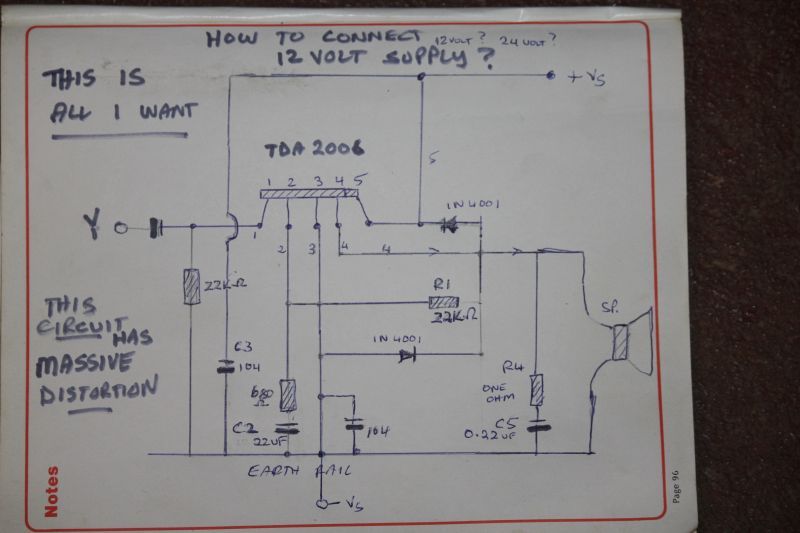 HOW TO CONNECT 12VOLT? 24VOLT?
12 VOLT SUPPLY?
THIS IS
ALL I WANT
+ Vs
TDA 2006
1 2 3 4 5
5
IN 4001
Y
1
2
3
4
4
22KΩ
R1
22KΩ
SP.
THIS
CIRCUIT HAS
MASSIVE
DISTORTION
C3
104
IN 4001
R4
ONE
OHM
680
Ω
C2
22UF
104
C5
0.22UF
EARTH RAIL
- Vs
Notes
Page 96